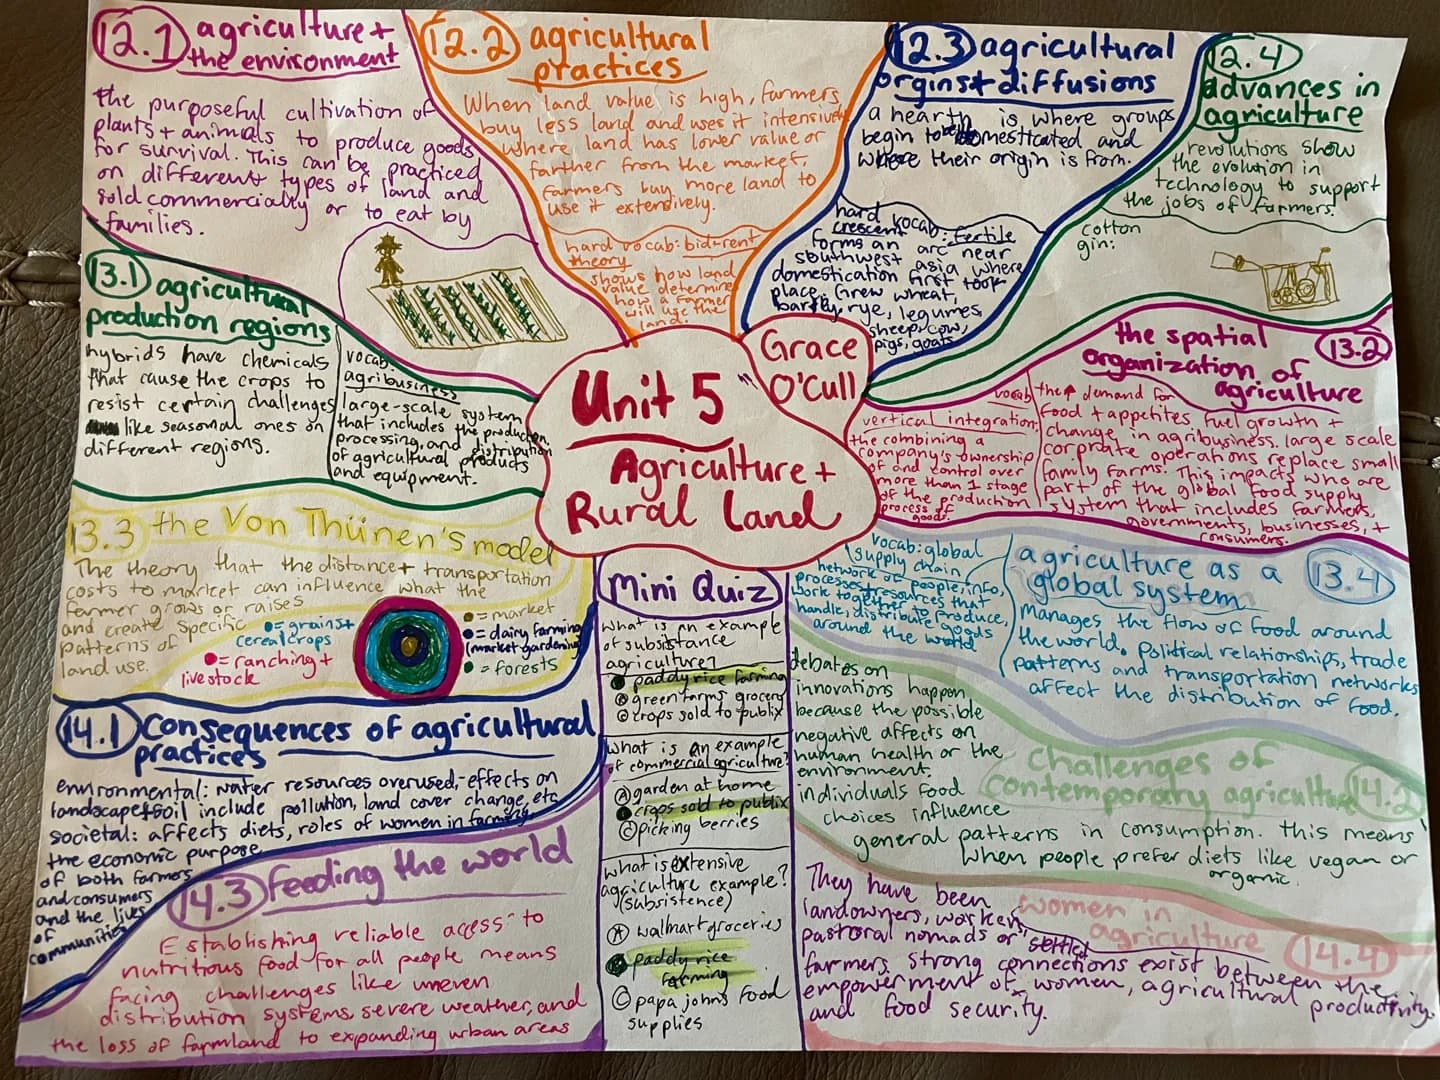 12.1 agriculture +
the environment
the purposeful cultivation of
plants + animals to produce goods
for survival. This can be practiced
on different types of land and
sold commercially or to eat by
families.
12.2 agricultural
practices
When land value is high, farmers
buy less land and uses it intensively
where land has lower value or
farther from the market,
farmers buy more land to
use it extensively.
hard vocab: bid-rent
theory
shows how land
value determines
how a farmer
will use the
land.
12.3 agricultural
orgins + diffusions
a hearth is where groups
begin to be domesticated and
where their origin is from.
hard vocab: fertile
crescent
forms an arc near
southwest asia where
domestication first took
place. Grew wheat,
barley, rye, legumes,
sheep, cow,
pigs, goats
12.4
advances in
agriculture
revolutions show
the evolution in
technology to support
the jobs of farmers.
cotton
gin:
13.1 agricultural
production regions
hybrids have chemicals
that cause the crops to
resist certain challenges
like seasonal ones on
different regions.
vocab:
agribusiness
large-scale system
that includes the production,
processing, and distribution
of agricultural products
and equipment.
Unit 5
Agriculture +
Rural Land
Grace
O'Cull
the spatial 13.2
organization of
agriculture
vocab
vertical integration:
the combining a
company's ownership
of and control over
more than 1 stage
of the production
process of
goods.
the ↑ demand for
food + appetites fuel growth +
change in agribusiness. large scale
corprate operations replace small
family farms. This impacts who are
part of the global food supply
system that includes farmers,
governments, businesses, +
consumers.
13.3 the Von Thünen's model
The theory that the distance + transportation
costs to market can influence what the
farmer grows or raises
and create specific
patterns of
land use.
= grains +
cereal crops
= ranching +
livestock
= market
= dairy farming
(market gardening)
= forests
agriculture as a 13.4
global system
vocab: global
supply chain
network of people, info,
processes, + resources that
work together to produce,
handle, distribute goods
around the world
manages the flow of food around
the world. Political relationships, trade
patterns and transportation networks
affect the distribution of food.
14.1 Consequences of agricultural
practices
environmental: water resources overused, effects on
landscape + soil include pollution, land cover change, etc
societal: affects diets, roles of women in farming,
the economic purpose
of both farmers
and consumers
and the lives
of
communities
Mini Quiz
What is an example
of subsistance
agriculture?
paddy rice farming
green farms grocery
crops sold to publix
what is an example
of commercial agriculture?
A garden at home
crops sold to publix
C picking berries
what is extensive
agriculture example?
(subsistence)
A walmart groceries
paddy rice
farming
C papa johns food
supplies
challenges of
contemporary agriculture 14.2
debates on
innovations happen
because the possible
negative affects on
human health or the
environment.
individuals food
choices influence
general patterns in consumption. this means
when people prefer diets like vegan or
organic.
14.3 feeding the world
Establishing reliable access to
nutritious food for all people means
facing challenges like uneven
distribution systems, severe weather, and
the loss of farmland to expanding urban areas
women in
agriculture 14.4
They have been
landowners, workers,
pastoral nomads or settled
farmers. strong connections exist between the
empowerment of women, agricultural productivity,
and food security.